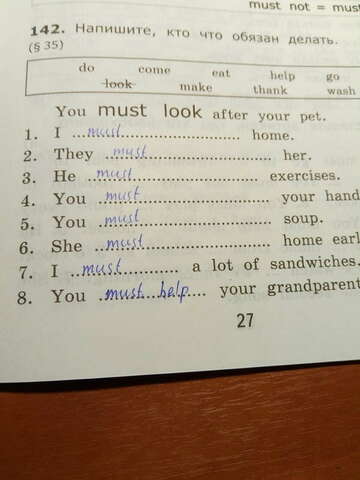 must not = mus
142. Напишите, кто что обязан делать.
(§ 35)
do come eat help go
look make thank wash
You must look after your pet.
1. I ...must........................ home.
2. They ...must........................ her.
3. He ...must........................ exercises.
4. You ...must........................ your hand
5. You ...must........................ soup.
6. She ...must........................ home earl
7. I ...must............ a lot of sandwiches.
8. You ...must help.... your grandparent
27